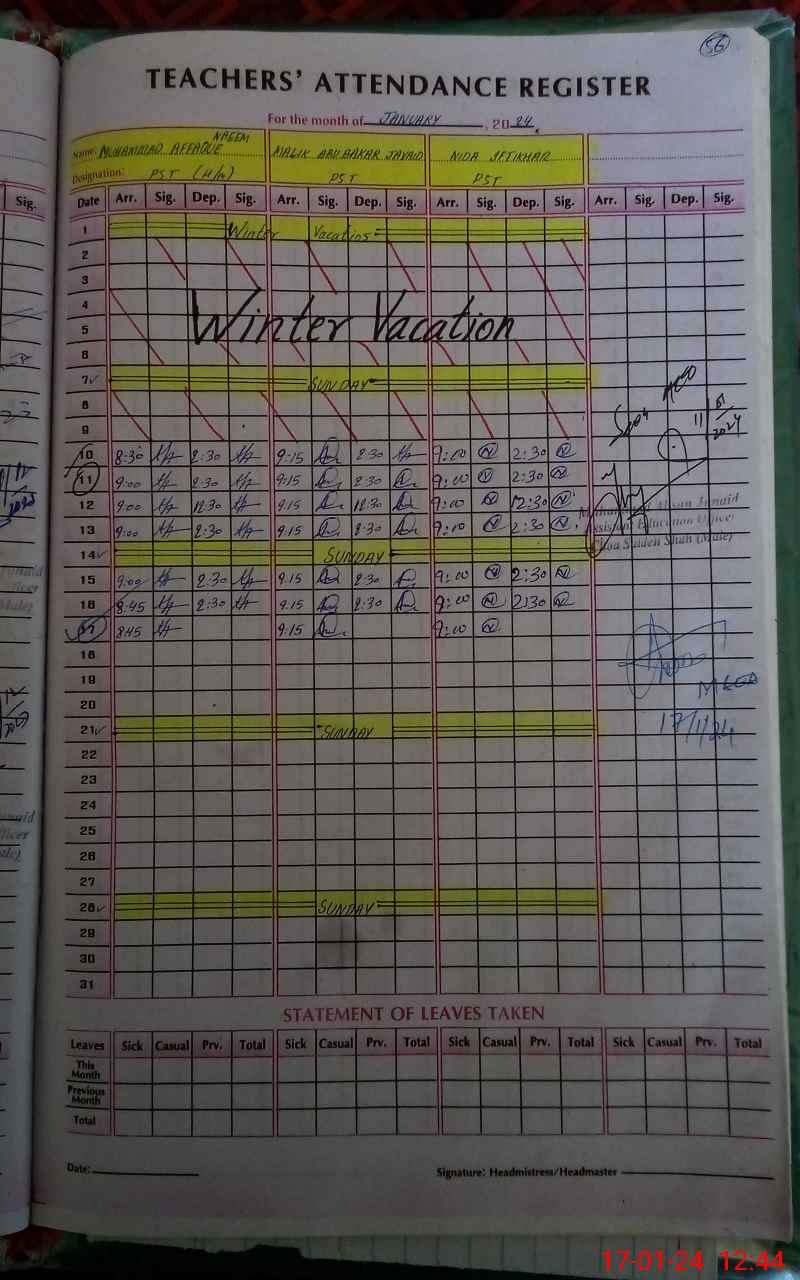 56
TEACHERS' ATTENDANCE REGISTER
For the month of JANUARY, 2024.
Name: MUHAMMAD AFFAQUE NAEEM MALIK ABU BAKAR JAVAID NIDA IFTIKHAR
Designation: PST (H/M) PST PST
Sig. Date Arr. Sig. Dep. Sig. Arr. Sig. Dep. Sig. Arr. Sig. Dep. Sig. Arr. Sig. Dep. Sig.
1 Winter Vacations
2
3
4
5 Winter Vacation
6
7 SUNDAY
8
9
11/01/2024
10 8:30 2:30 9:15 2:30 9:00 2:30
11 9:00 2:30 9:15 2:30 9:00 2:30
12 9:00 12:30 9:15 12:30 9:00 12:30
13 9:00 2:30 9:15 2:30 9:00 2:30
Muhammad Ahsan Junaid
Assistant Education Officer
Choa Saiden Shah (Male)
14 SUNDAY
15 9:00 2:30 9:15 2:30 9:00 2:30
16 8:45 2:30 9:15 2:30 9:00 2:30
17 8:45 9:15 9:00
18
19
20
17/1/24
21 SUNDAY
22
23
24
25
26
27
28 SUNDAY
29
30
31
STATEMENT OF LEAVES TAKEN
Leaves Sick Casual Prv. Total Sick Casual Prv. Total Sick Casual Prv. Total Sick Casual Prv. Total
This Month
Previous Month
Total
Date: Signature: Headmistress/Headmaster
17-01-24 12:44